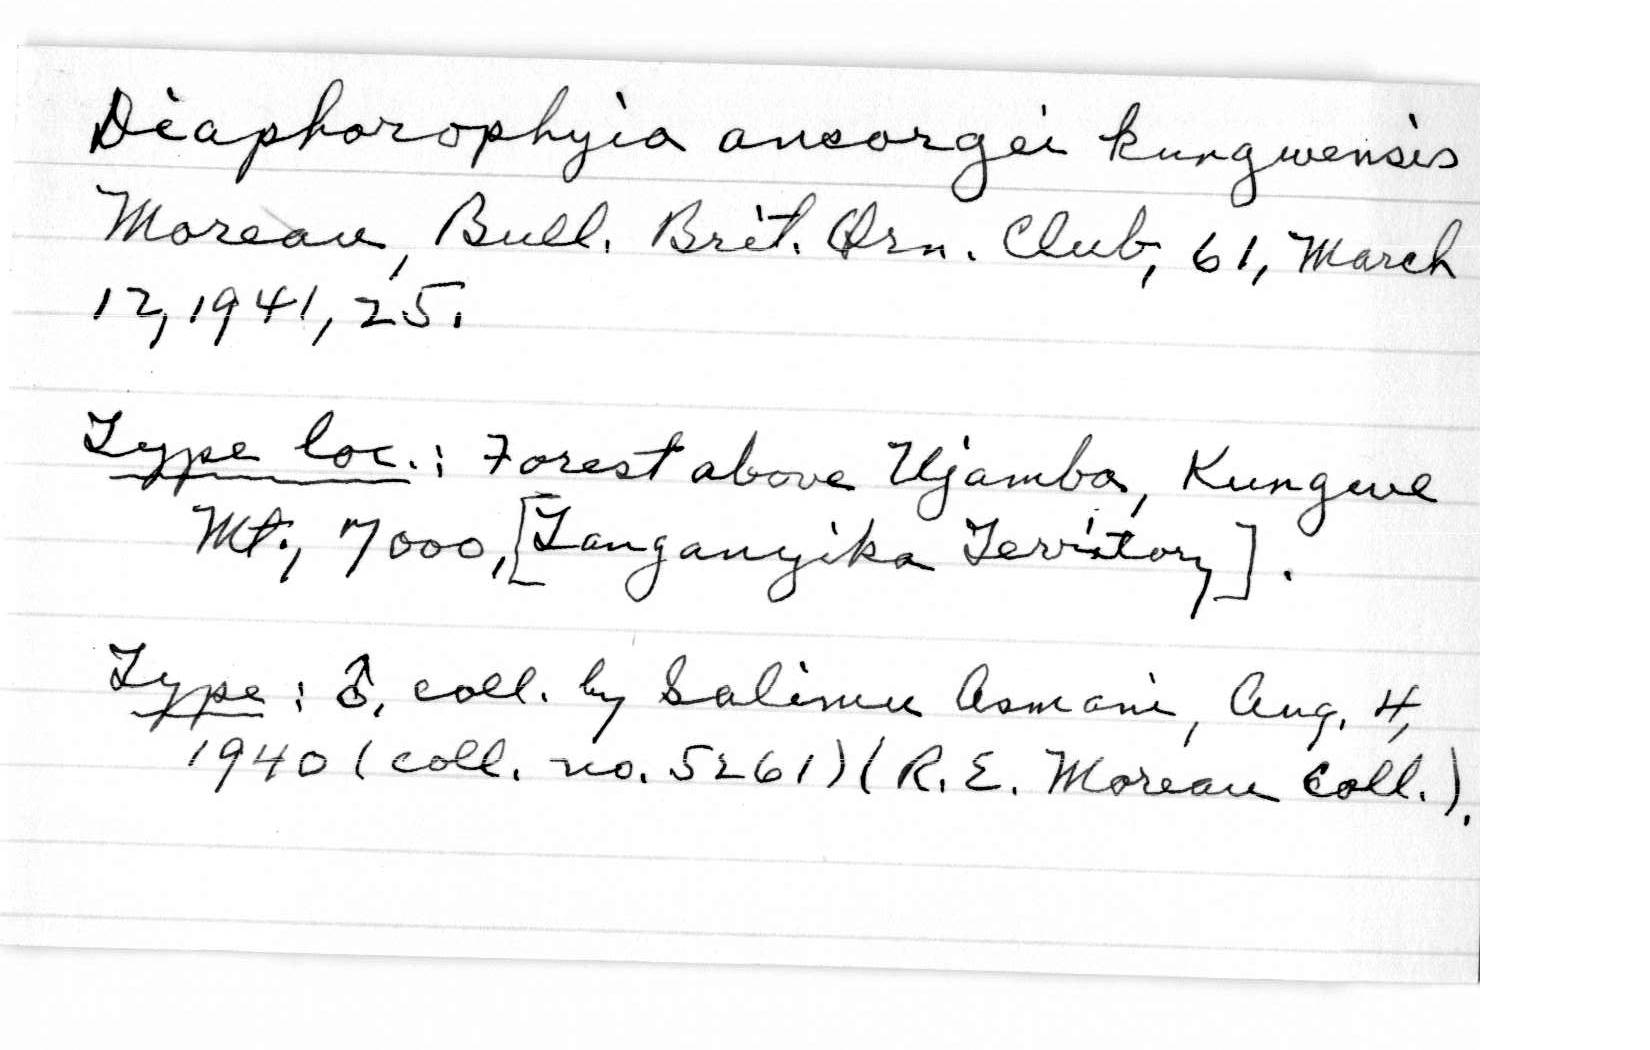 Diaphorophyia ansorgei kungwensis
Moreau, Bull. Brit. Orn. Club, 61, March
12, 1941, 25.
Type loc.: Forest above Ujamba, Kungwe
Mt., 7000, [Tanganyika Territory].
Type: ♂, coll. by Salimu Asmani, Aug. 4,
1940 (coll. no. 5261) (R. E. Moreau Coll.).